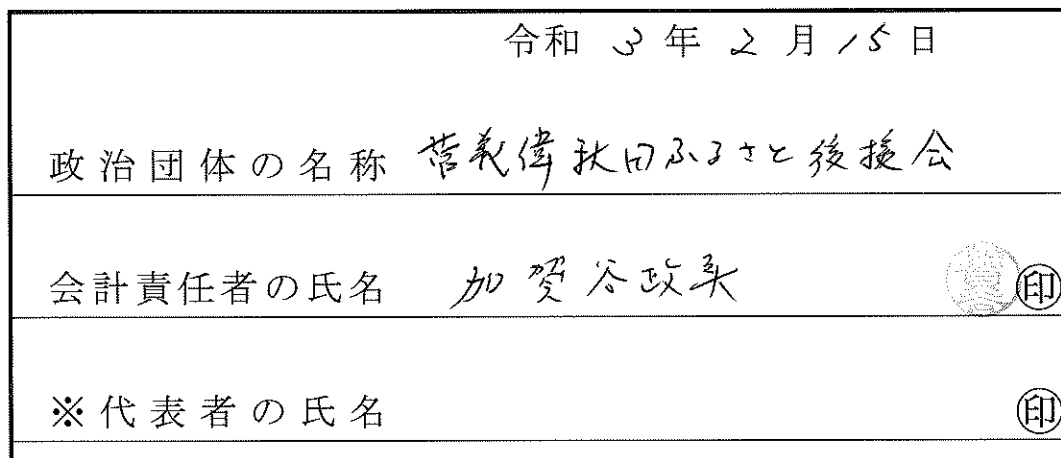 令和 3 年 2 月 15 日
政治団体の名称 菅義偉秋田ふるさと後援会
会計責任者の氏名 加賀谷政美 印
※代表者の氏名 印